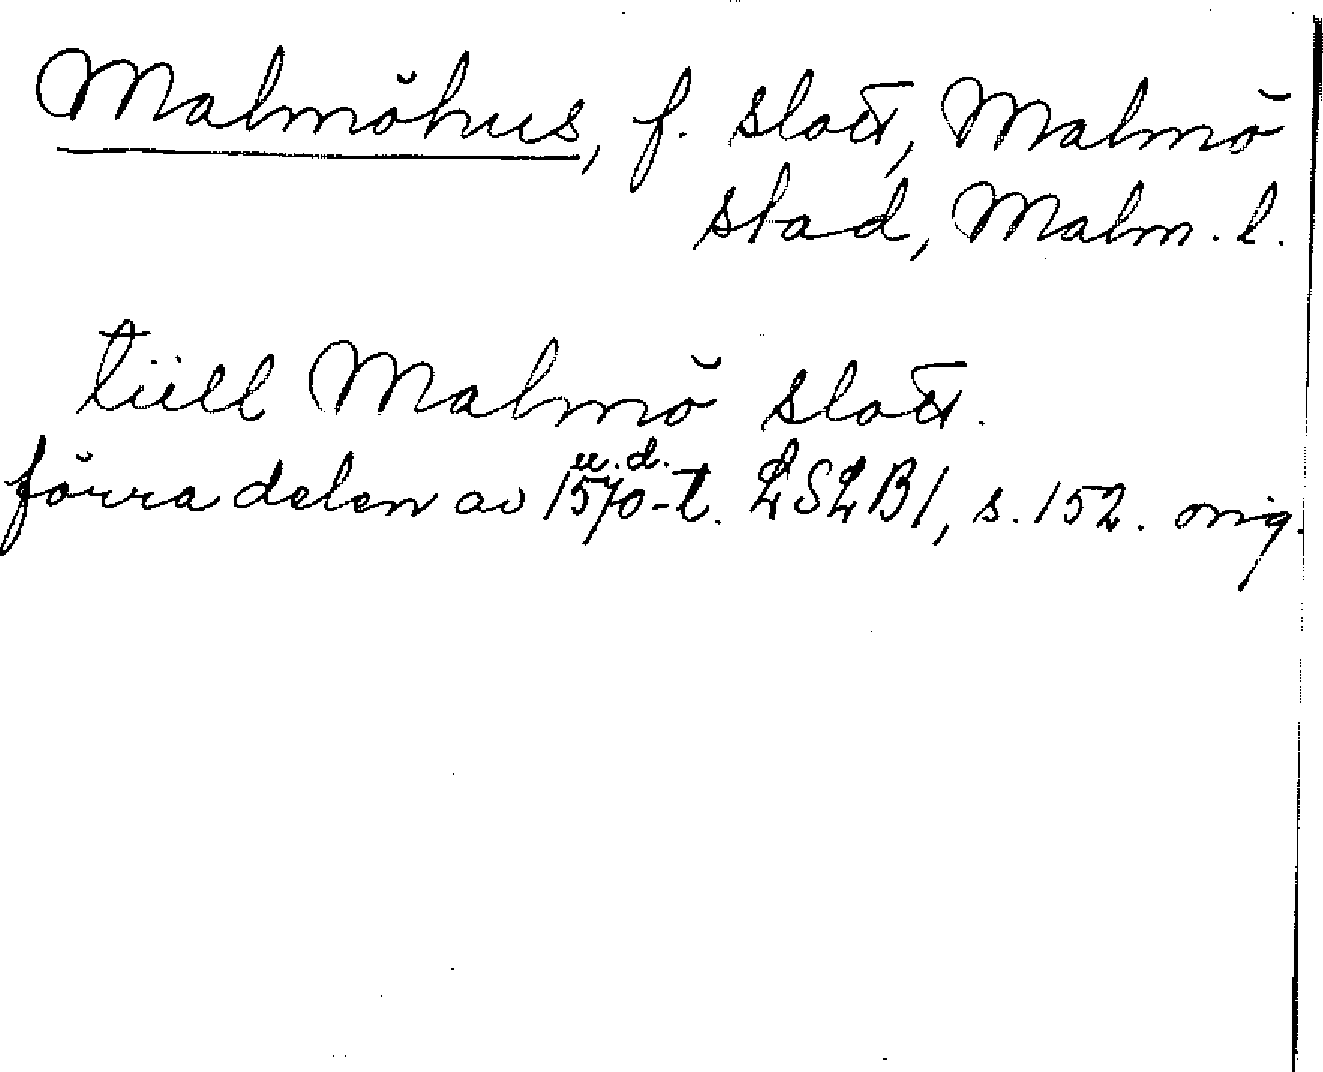 Malmöhus, f. slott, Malmö
stad, Malm. l.
tiill Malmö slott.
u. d.
förra delen av 1570-t. LSLB1, s. 152. orig.